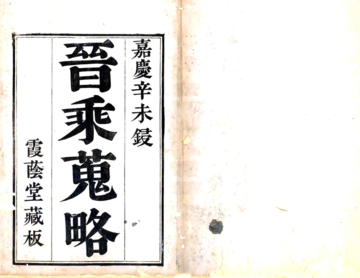 嘉慶辛未鋟
晉乘蒐略
霞蔭堂藏板